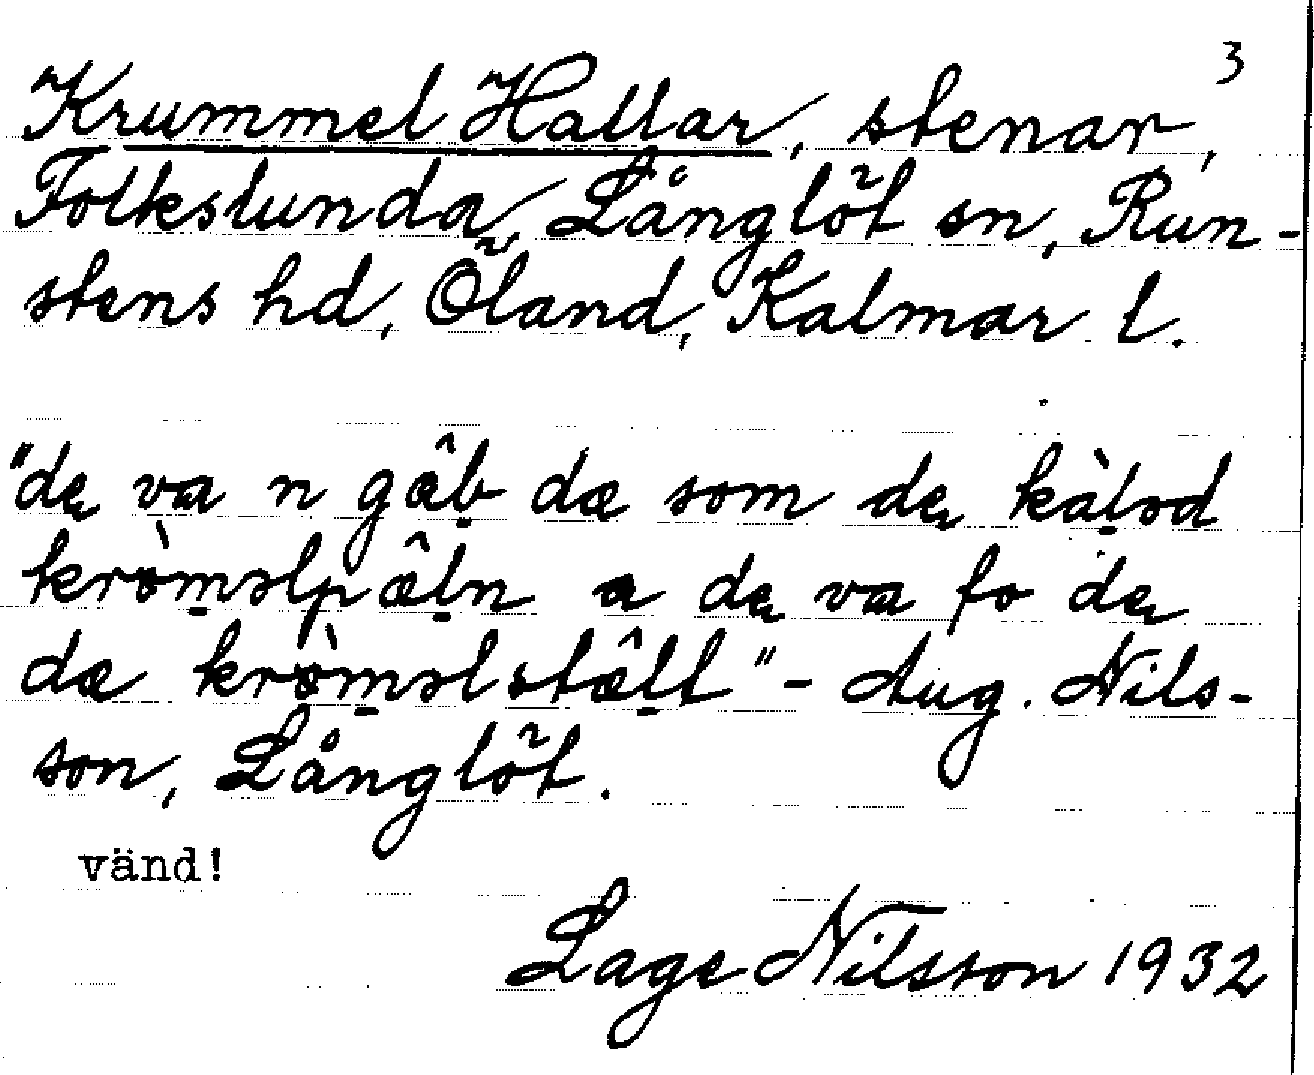 3
Krummel Hallar, stenar,
Folkslunda, Långlöt sn, Run-
stens hd, Öland, Kalmar l.
"de va n gâb dæ som de kàləd
kròməlpâln a de va fo de
dæ kròməlstâlt" - Aug. Nils-
son, Långlöt.
vänd!
Lage Nilsson 1932